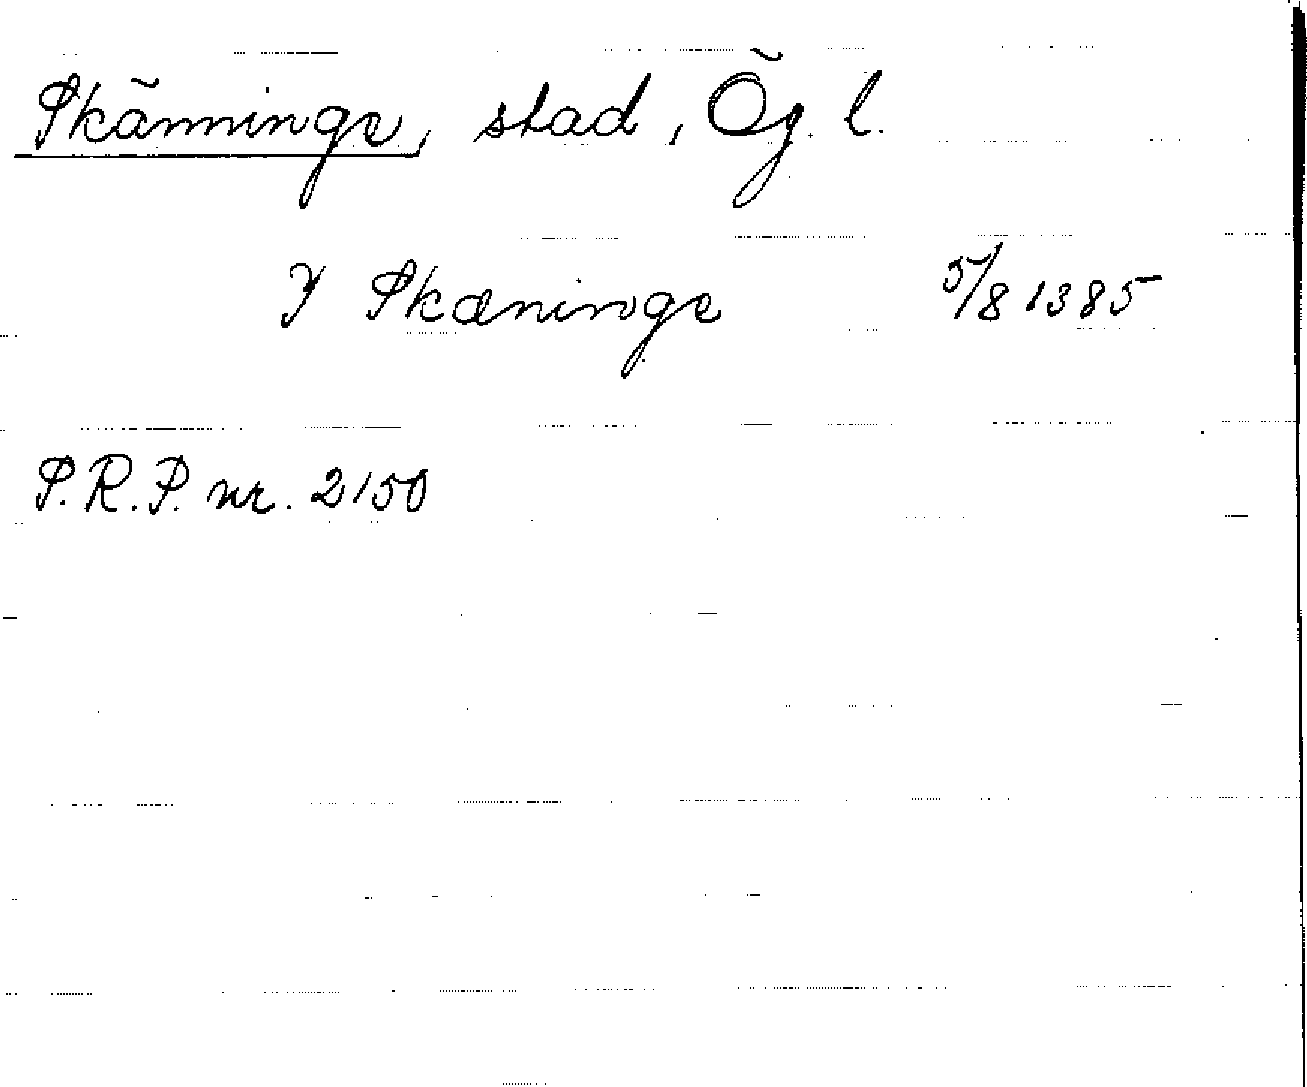 Skänninge, stad, Ög. l.
J Skæninge 5/8 1385
P.R.P. nr. 2150